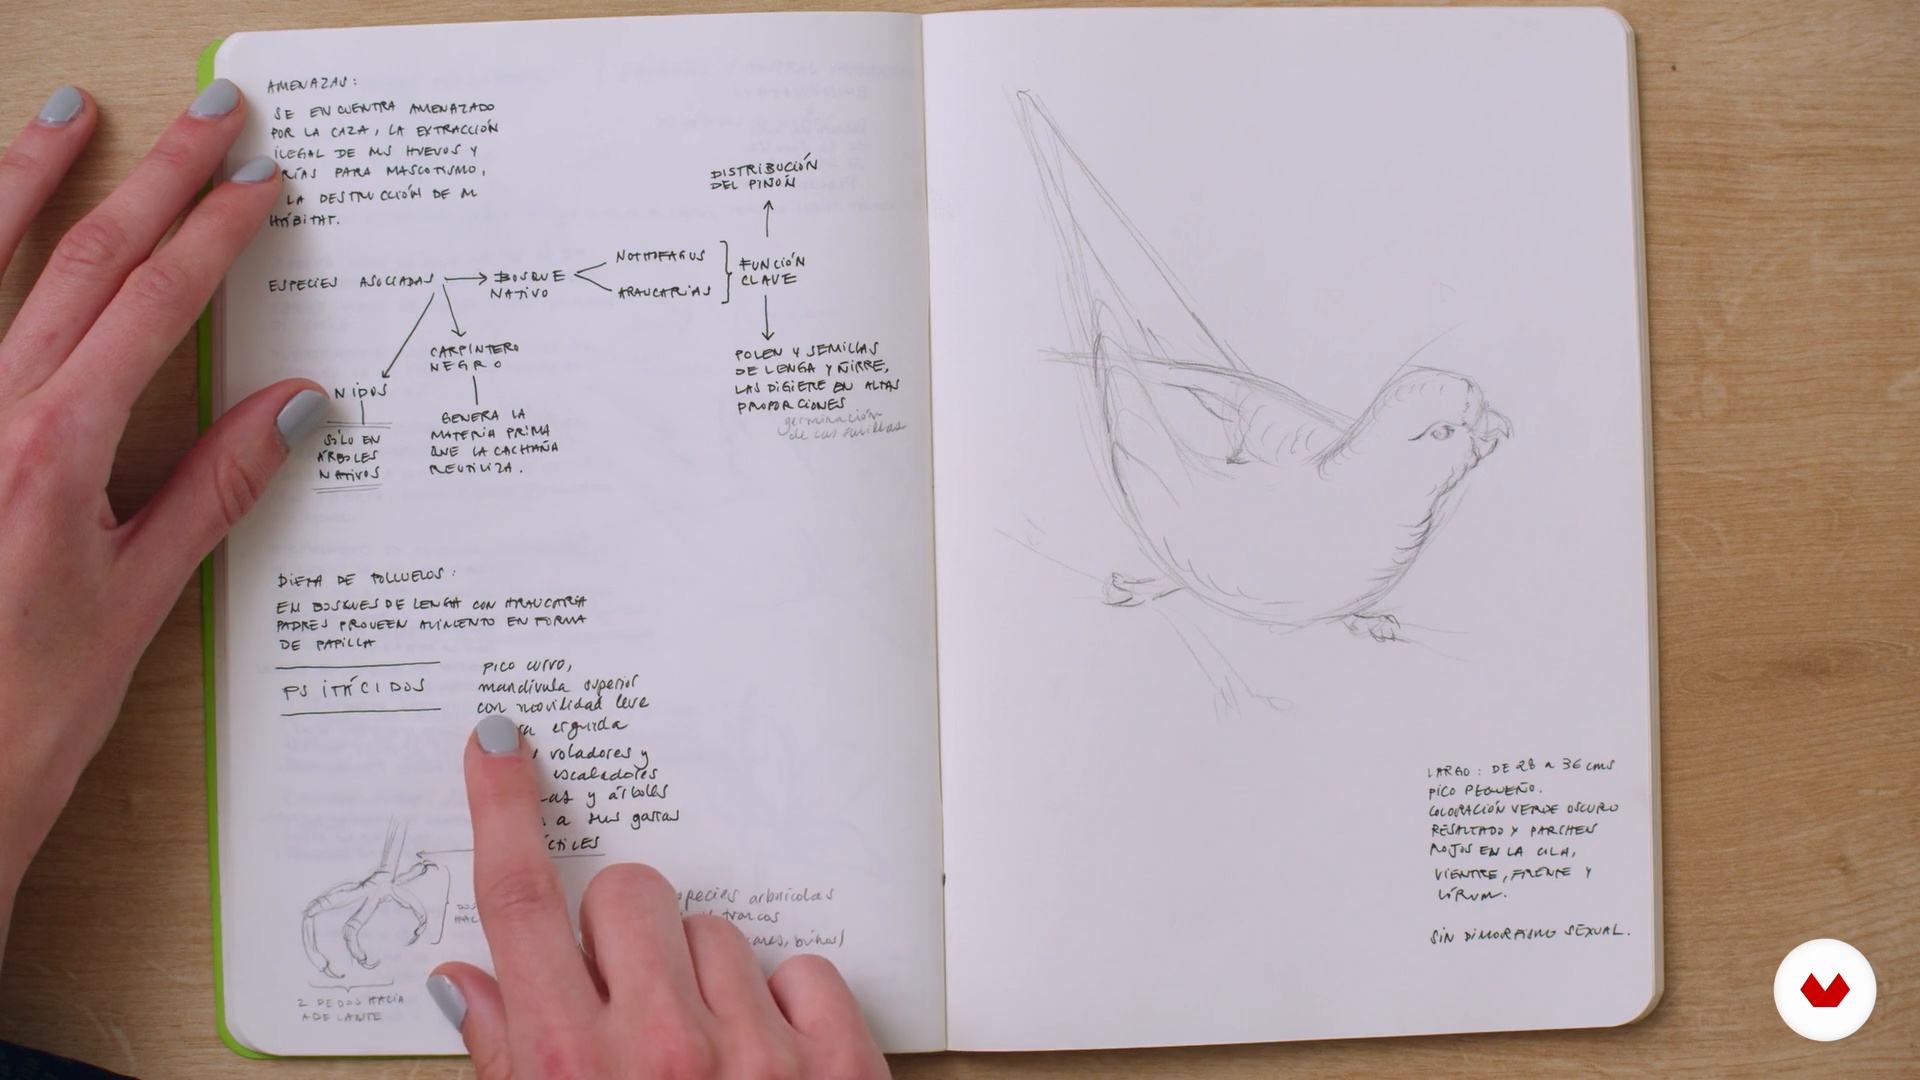 AMENAZAS:
SE ENCUENTRA AMENAZADO
POR LA CAZA, LA EXTRACCIÓN
ILEGAL DE SUS HUEVOS Y
RÍAS PARA MASCOTISMO,
LA DESTRUCCIÓN DE SU
HÁBITAT.
ESPECIES ASOCIADAS
BOSQUE
NATIVO
NOTHOFAGUS
ARAUCARIAS
FUNCIÓN
CLAVE
DISTRIBUCIÓN
DEL PIÑÓN
POLEN Y SEMILLAS
DE LENGA Y ÑIRRE,
LAS DIGIERE EN ALTAS
PROPORCIONES
germinación
de las semillas
CARPINTERO
NEGRO
GENERA LA
MATERIA PRIMA
QUE LA CACHAÑA
REUTILIZA.
NIDOS
SÓLO EN
ÁRBOLES
NATIVOS
DIETA DE POLLUELOS:
EN BOSQUES DE LENGA CON ARAUCARIA
PADRES PROVEEN ALIMENTO EN FORMA
DE PAPILLA
PSITÁCIDOS
pico curvo,
mandíbula superior
con movilidad leve
erguida
voladores y
escaladores
y árboles
a sus garras
CTILES
2 DEDOS HACIA
ADELANTE
species arbóricolas
troncos
LARGO: DE 28 a 36 cms
PICO PEQUEÑO.
COLORACIÓN VERDE OSCURO
RESALTADO Y PARCHES
ROJOS EN LA COLA,
VIENTRE, FRENTE Y
LÓRUM.
SIN DIMORFISMO SEXUAL.